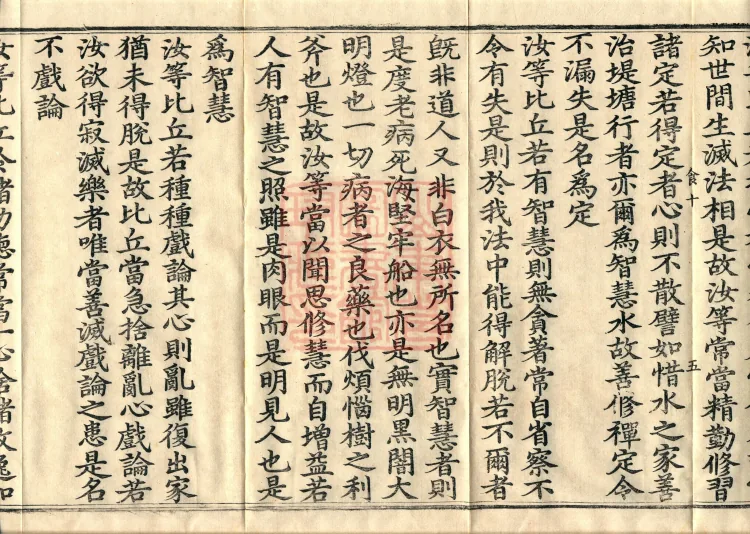 知世間生滅法相是故汝等常當精勤修習
諸定若得定者心則不散譬如惜水之家善
食十
五
治堤塘行者亦爾為智慧水故善修禪定令
不漏失是名為定
汝等比丘若有智慧則無貪著常自省察不
令有失是則於我法中能得解脫若不爾者
旣非道人又非白衣無所名也實智慧者則
是度老病死海堅牢船也亦是無明黑闇大
明燈也一切病者之良藥也伐煩惱樹之利
斧也是故汝等當以聞思修慧而自增益若
人有智慧之照雖是肉眼而是明見人也是
為智慧
汝等比丘若種種戲論其心則亂雖復出家
猶未得脫是故比丘當急捨離亂心戲論若
汝欲得寂滅樂者唯當善滅戲論之患是名
不戲論